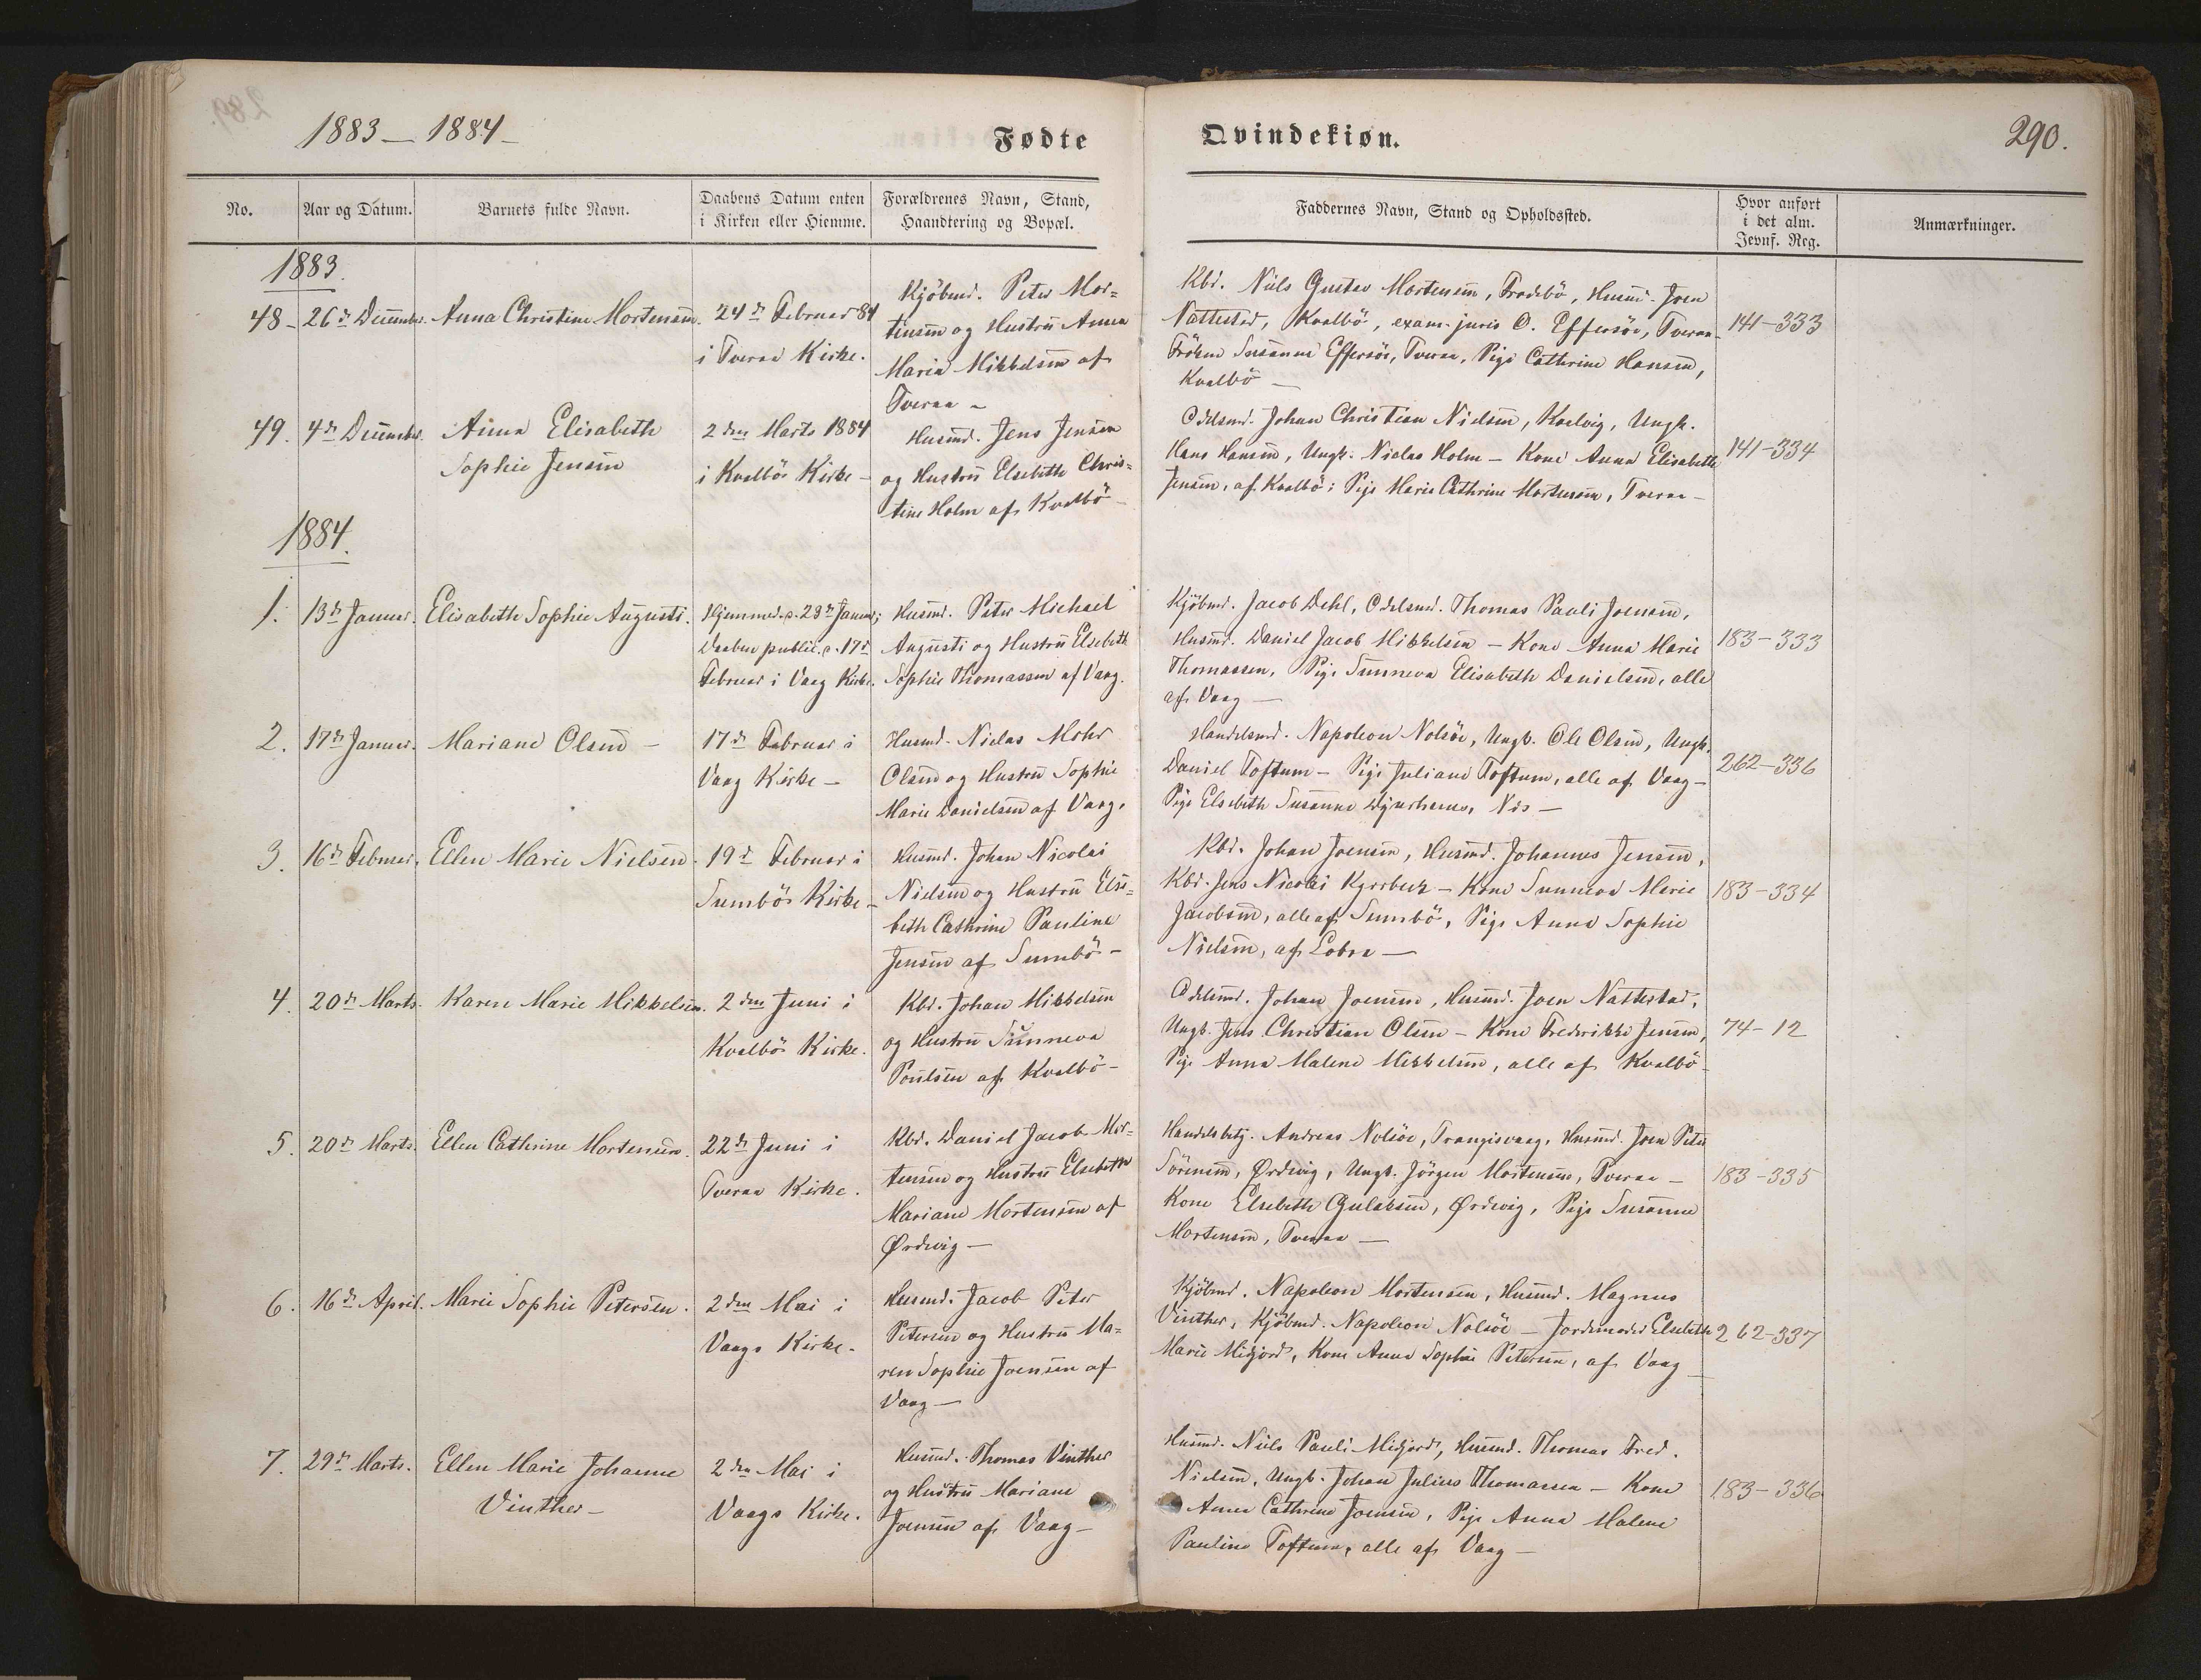 1883 — 1884 —
Fødte
Qvindekiøn.
290.
No.
Aar og Datum.
Barnets fulde Navn.
Daabens Datum enten
i Kirken eller Hiemme.
Forældrenes Navn, Stand,
Haandtering og Bopæl.
Faddernes Navn, Stand og Opholdssted.
Hvor anført
i det alm.
Jevnf. Reg.
Anmærkninger.
1883.
48 –
26de December.
Anna Christine Mortensen.
24de Februar 84
i Tveraa Kirke.
Kjöbmd. Peter Mor=
tensen og Hustru Anna
Maria Mikkelsen af
Tveraa –
Kbd. Niels Gustav Mortensen, Frodebö, Husmd. Joen
Nattestad, Kvalbö, exam. juris O. Effersöe, Tveraa –
Fröken Susanne Effersöe, Tveraa, Pige Cathrine Hansen,
Kvalbö –
141–333
49.
4de December.
Anna Elisabeth
Sophie Jensen
2den Marts 1884
i Kvalbö Kirke –
Husmd. Jens Jensen
og Hustru Elsebeth Chris=
tine Holm af Kvalbö –
Odelsmd. Johan Christian Nielsen, Kvelvig, Ungk.
Hans Hansen, Ungk. Niclas Holm – Kone Anna Elisabeth
Jensen, af Kvalbö; Pige Marie Cathrine Mortensen, Tveraa –
141–334
1884.
1.
13de Januar.
Elisabeth Sophie Augusti.
Hjemmed. d. 28de Januar;
Daaben public. d. 17de
Februar i Vaag Kirke.
Husmd. Peter Michael
Augusti og Hustru Elsebeth
Sophie Thomassen af Vaag.
Kjöbmd. Jacob Dehl, Odelsmd. Thomas Pauli Joensen,
Husmd. Daniel Jacob Mikkelsen – Kone Anna Marie
Thomassen, Pige Sunneva Elisabeth Danielsen, alle
af Vaag –
183–333
2.
17de Januar.
Mariane Olsen –
17de Februar i
Vaag Kirke –
Husmd. Niclas Mohr
Olsen og Hustru Sophie
Marie Danielsen af Vaag.
Handelsmd. Napoleon Nolsöe, Ungk. Ole Olsen, Ungk.
Daniel Toftum – Pige Juliane Toftum, alle af Vaag –
Pige Elsebeth Susanne Djurhuus, Næs –
262–336
3.
16de Februar.
Ellen Marie Nielsen.
19de Februar i
Sumbö Kirke –
Husmd. Johan Nicolai
Nielsen og Hustru Else=
beth Cathrine Pauline
Jensen af Sumbö –
Kbd. Johan Joensen, Husmd. Johannes Jensen,
Kbd. Jens Nicolai Kjærbech – Kone Sunneva Marie
Jacobsen, alle af Sumbö, Pige Anna Sophie
Nielsen, af Lobra –
183–334
4.
20de Marts.
Karen Marie Mikkelsen.
2den Juni i
Kvalbö Kirke.
Kbd. Johan Mikkelsen
og Hustru Sunneva
Poulsen af Kvalbö –
Odelsmd. Johan Joensen, Husmd. Joen Nattestad,
Ungk. Jens Christian Olsen – Kone Frederikke Jensen,
Pige Anna Malene Mikkelsen, alle af Kvalbö –
74–12
5.
20de Marts.
Ellen Cathrine Mortensen.
22de Juni i
Tveraa Kirke.
Kbd. Daniel Jacob Mor=
tensen og Hustru Elsebeth
Mariane Mortensen af
Ördevig –
Handelsbetj. Andreas Nolsöe, Trangisvaag, Husmd. Joen Peter
Sörensen, Ördevig, Ungk. Jörgen Mortensen, Tveraa –
Kone Elsebeth Gulaksen, Ördevig, Pige Susanne
Mortensen, Tveraa –
183–335
6.
16de April.
Marie Sophie Petersen.
2den Mai i
Vaags Kirke.
Husmd. Jacob Peter
Petersen og Hustru Ma=
ren Sophie Joensen af
Vaag –
Kjöbmd. Napoleon Mortensen, Husmd. Magnus
Vinther, Kjöbmd. Napoleon Nolsöe – Jordemoder Elsebeth
Marie Midjord, Kone Anna Sophie Petersen, af Vaag –
262–337
7.
29de Marts.
Ellen Marie Johanne
Vinther –
2den Mai i
Vaags Kirke.
Husmd. Thomas Vinther
og Hustru Mariane
Joensen af Vaag –
Husmd. Niels Pauli Midjord, Husmd. Thomas Fred.
Nielsen, Ungk. Johan Julius Thomassen – Kone
Anna Cathrine Joensen, Pige Anna Malene
Pauline Toftum, alle af Vaag –
183–336